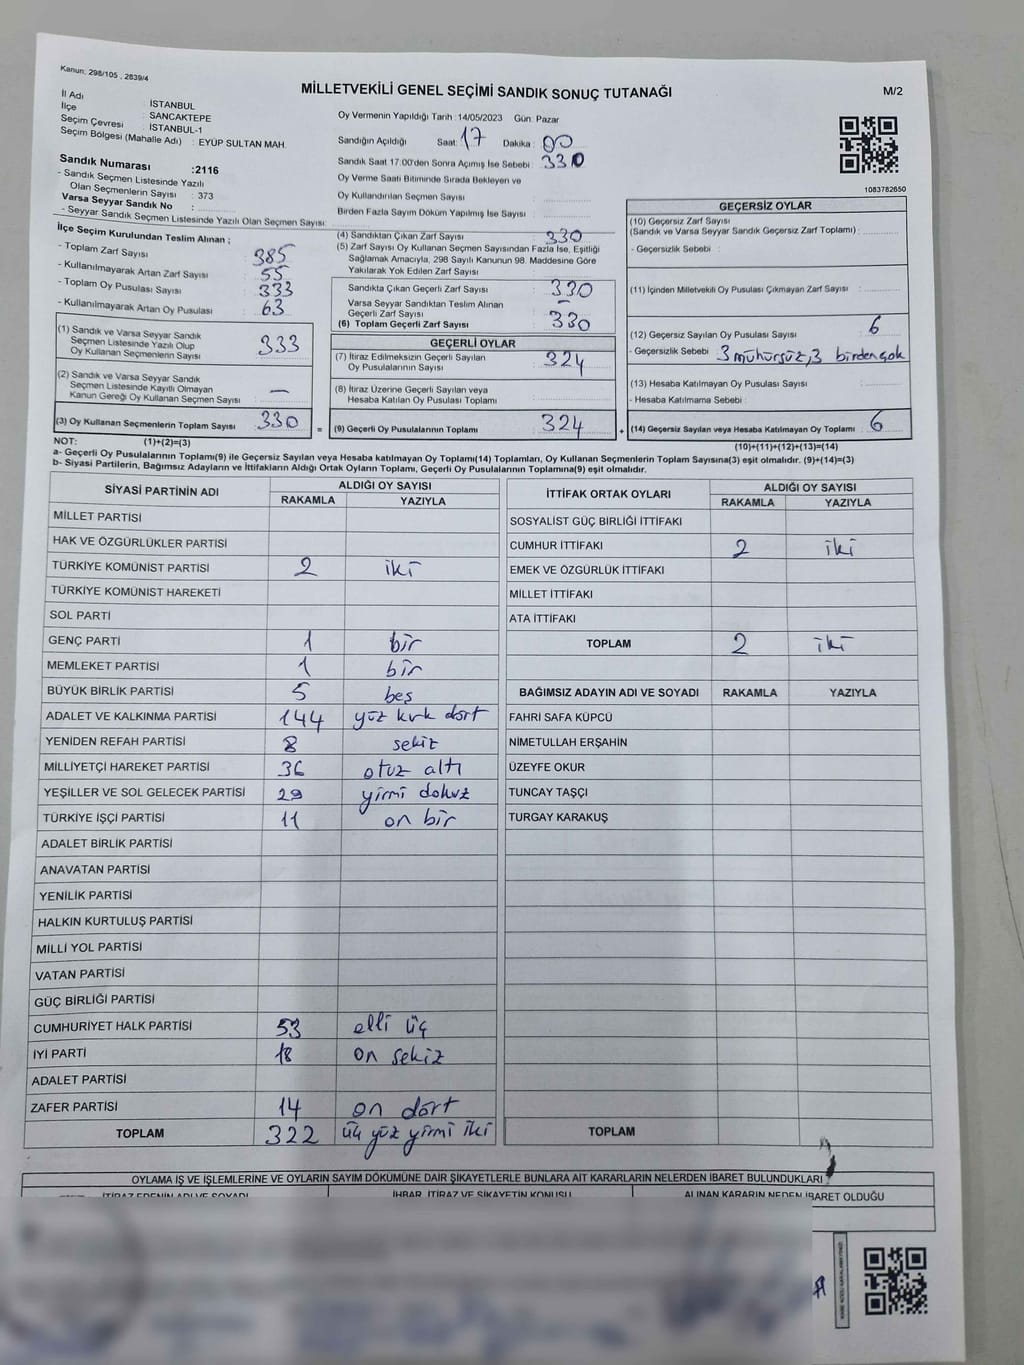 Kanun: 298/105 , 2839/4
MİLLETVEKİLİ GENEL SEÇİMİ SANDIK SONUÇ TUTANAĞI
M/2
İl Adı İSTANBUL
İlçe SANCAKTEPE
Seçim Çevresi İSTANBUL-1
Seçim Bölgesi (Mahalle Adı) : EYÜP SULTAN MAH.
Oy Vermenin Yapıldığı Tarih :14/05/2023 Gün: Pazar
Sandığın Açıldığı Saat: 17 Dakika : 00
Sandık Saat 17:00'den Sonra Açılmış İse Sebebi : 330
Oy Verme Saati Bitiminde Sırada Bekleyen ve
Oy Kullandırılan Seçmen Sayısı :
Birden Fazla Sayım Döküm Yapılmış İse Sayısı :
1083782650
Sandık Numarası :2116
- Sandık Seçmen Listesinde Yazılı
Olan Seçmenlerin Sayısı : 373
Varsa Seyyar Sandık No :
- Seyyar Sandık Seçmen Listesinde Yazılı Olan Seçmen Sayısı:
İlçe Seçim Kurulundan Teslim Alınan ;
- Toplam Zarf Sayısı : 385
- Kullanılmayarak Artan Zarf Sayısı : 55
- Toplam Oy Pusulası Sayısı : 333
- Kullanılmayarak Artan Oy Pusulası : 63
(1) Sandık ve Varsa Seyyar Sandık
Seçmen Listesinde Yazılı Olup
Oy Kullanan Seçmenlerin Sayısı : 333
(2) Sandık ve Varsa Seyyar Sandık
Seçmen Listesinde Kayıtlı Olmayan
Kanun Gereği Oy Kullanan Seçmen Sayısı : —
(3) Oy Kullanan Seçmenlerin Toplam Sayısı : 330 =
(4) Sandıktan Çıkan Zarf Sayısı : 330
(5) Zarf Sayısı Oy Kullanan Seçmen Sayısından Fazla İse, Eşitliği
Sağlamak Amacıyla, 298 Sayılı Kanunun 98. Maddesine Göre
Yakılarak Yok Edilen Zarf Sayısı :
Sandıkta Çıkan Geçerli Zarf Sayısı : 330
Varsa Seyyar Sandıktan Teslim Alınan
Geçerli Zarf Sayısı : —
(6) Toplam Geçerli Zarf Sayısı : 330
GEÇERLİ OYLAR
(7) İtiraz Edilmeksizin Geçerli Sayılan
Oy Pusulalarının Sayısı : 324
(8) İtiraz Üzerine Geçerli Sayılan veya
Hesaba Katılan Oy Pusulası Toplamı :
(9) Geçerli Oy Pusulalarının Toplamı : 324 +
GEÇERSİZ OYLAR
(10) Geçersiz Zarf Sayısı
(Sandık ve Varsa Seyyar Sandık Geçersiz Zarf Toplamı) :
- Geçersizlik Sebebi :
(11) İçinden Milletvekili Oy Pusulası Çıkmayan Zarf Sayısı :
(12) Geçersiz Sayılan Oy Pusulası Sayısı : 6
- Geçersizlik Sebebi : 3 mühürsüz, 3 birden çok
(13) Hesaba Katılmayan Oy Pusulası Sayısı :
- Hesaba Katılmama Sebebi :
(14) Geçersiz Sayılan veya Hesaba Katılmayan Oy Toplamı : 6
NOT: (1)+(2)=(3)
(10)+(11)+(12)+(13)=(14)
a- Geçerli Oy Pusulalarının Toplamı(9) ile Geçersiz Sayılan veya Hesaba katılmayan Oy Toplamı(14) Toplamları, Oy Kullanan Seçmenlerin Toplam Sayısına(3) eşit olmalıdır. (9)+(14)=(3)
b- Siyasi Partilerin, Bağımsız Adayların ve İttifakların Aldığı Ortak Oyların Toplamı, Geçerli Oy Pusulalarının Toplamına(9) eşit olmalıdır.
SİYASİ PARTİNİN ADI ALDIĞI OY SAYISI
RAKAMLA YAZIYLA
MİLLET PARTİSİ
HAK VE ÖZGÜRLÜKLER PARTİSİ
TÜRKİYE KOMÜNİST PARTİSİ 2 iki
TÜRKİYE KOMÜNİST HAREKETİ
SOL PARTİ
GENÇ PARTİ 1 bir
MEMLEKET PARTİSİ 1 bir
BÜYÜK BİRLİK PARTİSİ 5 beş
ADALET VE KALKINMA PARTİSİ 144 yüz kırk dört
YENİDEN REFAH PARTİSİ 8 sekiz
MİLLİYETÇİ HAREKET PARTİSİ 36 otuz altı
YEŞİLLER VE SOL GELECEK PARTİSİ 29 yirmi dokuz
TÜRKİYE İŞÇİ PARTİSİ 11 on bir
ADALET BİRLİK PARTİSİ
ANAVATAN PARTİSİ
YENİLİK PARTİSİ
HALKIN KURTULUŞ PARTİSİ
MİLLİ YOL PARTİSİ
VATAN PARTİSİ
GÜÇ BİRLİĞİ PARTİSİ
CUMHURİYET HALK PARTİSİ 53 elli üç
İYİ PARTİ 18 on sekiz
ADALET PARTİSİ
ZAFER PARTİSİ 14 on dört
TOPLAM 322 üç yüz yirmi iki
İTTİFAK ORTAK OYLARI ALDIĞI OY SAYISI
RAKAMLA YAZIYLA
SOSYALİST GÜÇ BİRLİĞİ İTTİFAKI
CUMHUR İTTİFAKI 2 iki
EMEK VE ÖZGÜRLÜK İTTİFAKI
MİLLET İTTİFAKI
ATA İTTİFAKI
TOPLAM 2 iki
BAĞIMSIZ ADAYIN ADI VE SOYADI RAKAMLA YAZIYLA
FAHRİ SAFA KÜPCÜ
NİMETULLAH ERŞAHİN
ÜZEYFE OKUR
TUNCAY TAŞÇI
TURGAY KARAKUŞ
TOPLAM
OYLAMA İŞ VE İŞLEMLERİNE VE OYLARIN SAYIM DÖKÜMÜNE DAİR ŞİKAYETLERLE BUNLARA AİT KARARLARIN NELERDEN İBARET BULUNDUKLARI
İTİRAZ EDENİN ADI VE SOYADI İHBAR, İTİRAZ VE ŞİKAYETİN KONUSU ALINAN KARARIN NEDEN İBARET OLDUĞU